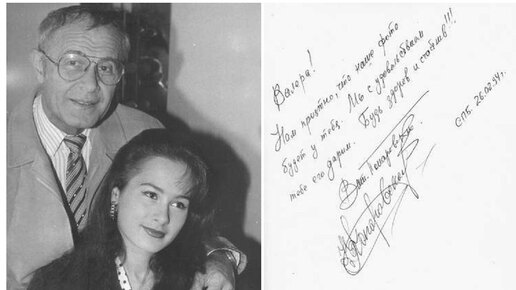 Валера!
Нам приятно, что наше фото
будет у тебя. Мы с удовольствием
тебе его дарим. Будь здоров и счастлив!!!
СПБ. 26.02.94г.